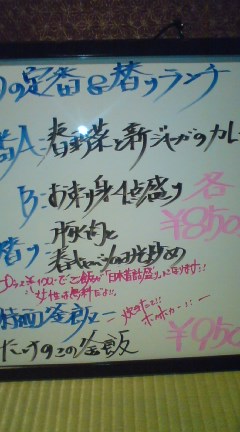 の定番&日替りランチ
A 春野菜と新ジャガのカレ
B お刺身4点盛り 各
¥850
替り 豚肉と
春キャベツのみそ炒め
プラス¥100でご飯が"日本昔話盛り"になります!!
女性は無料だよ!!
特画釜飯 炊きたて!!
ホッホカー!!
たけのこの釜飯 ¥950